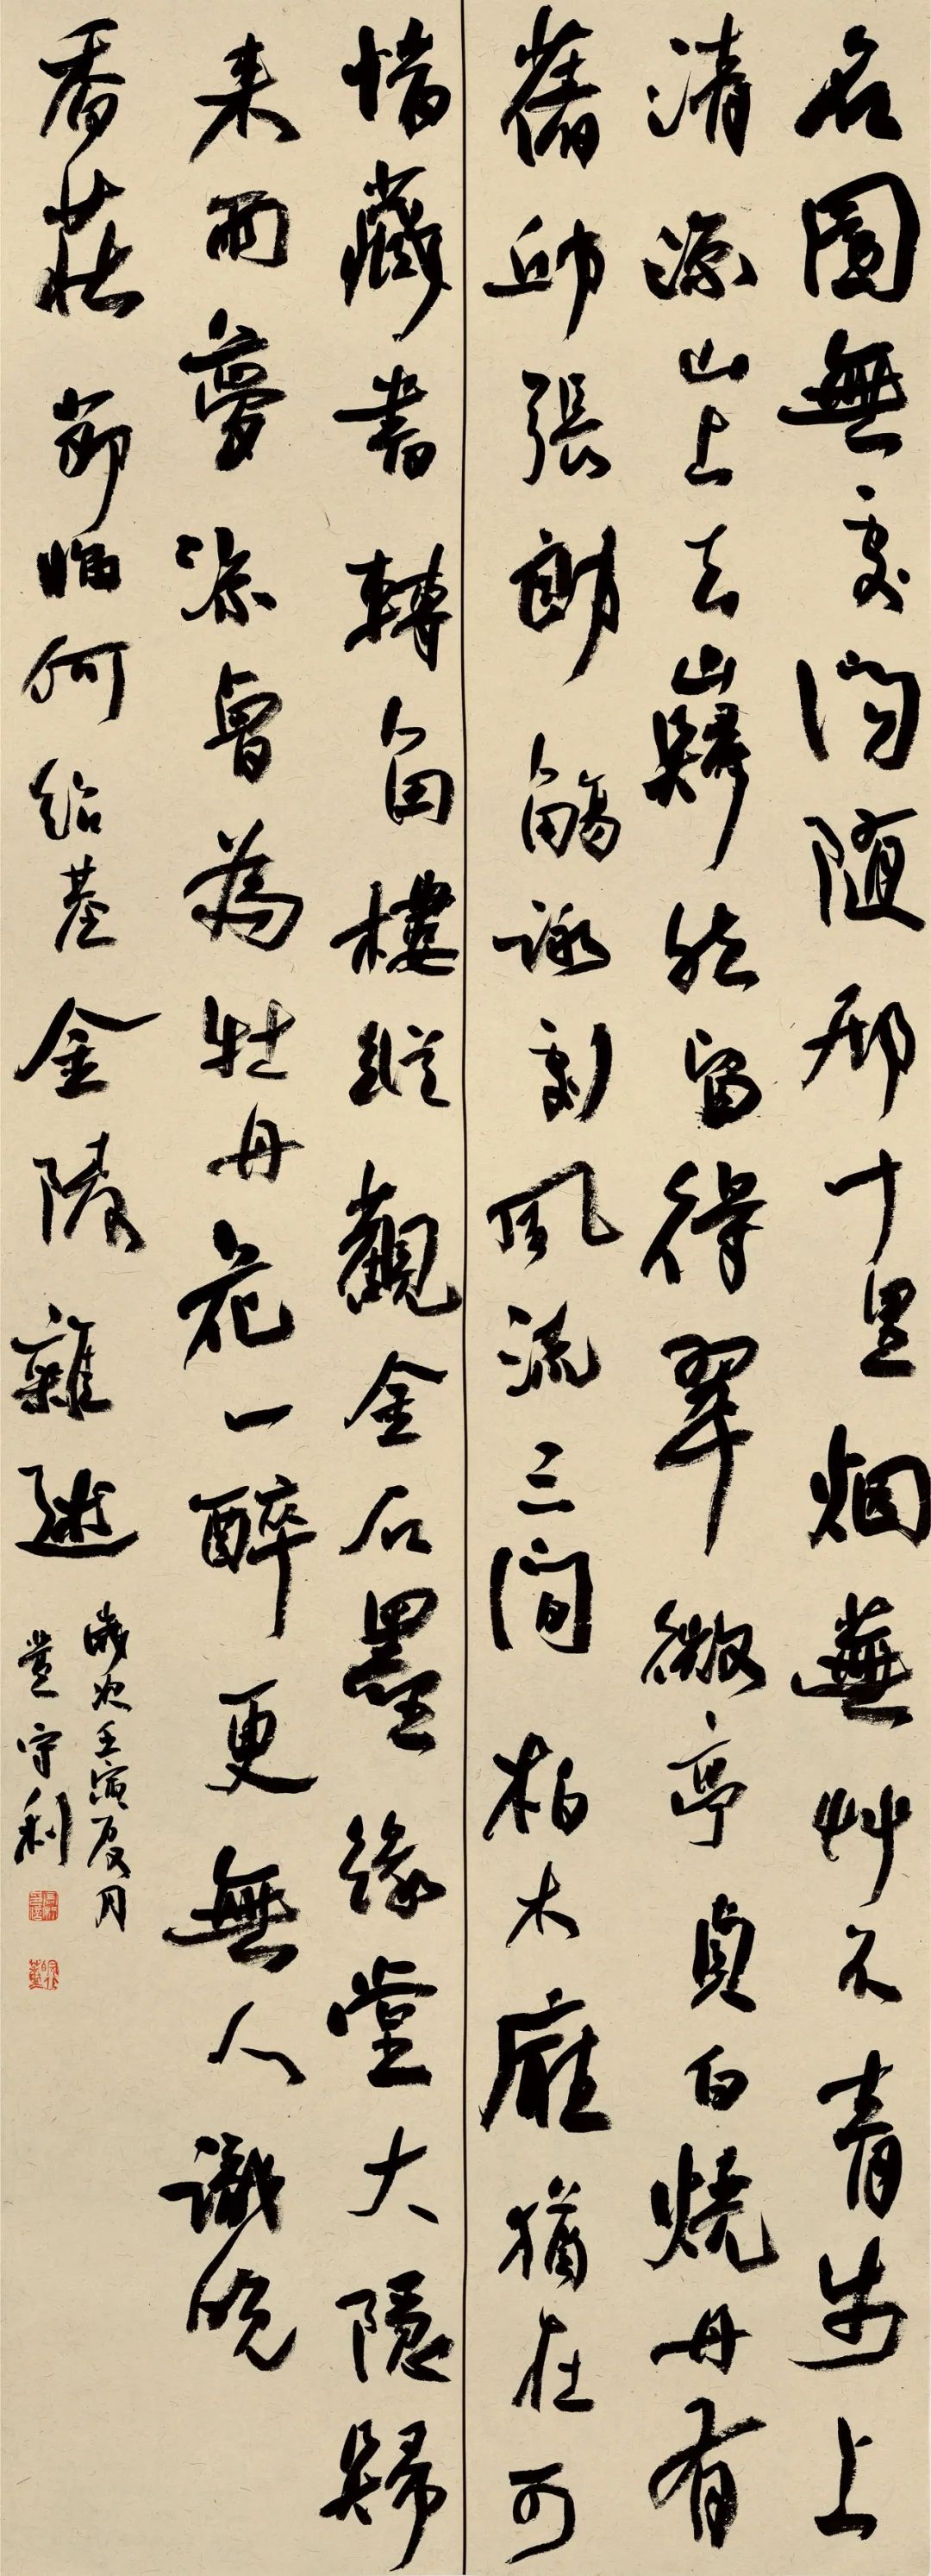 名園無處問随邢十里烟蕪艸不青步上
清源山上去山歸然留得翠微亭貞白燒丹有
舊邱張郎觴詠剩風流三間柏木廳猶在可
惜藏書轉角樓縱觀金石墨緣堂大隱歸
来雨夢涼曾為牡丹花一醉更無人識晚
香莊 節臨何紹基金陵雜述
歲次壬寅夏月
守利